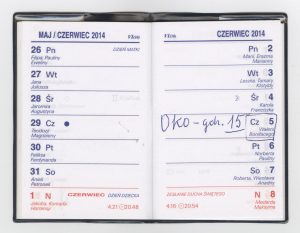 MAJ / CZERWIEC 2014
26 Pn DZIEŃ MATKI
Filipa, Pauliny
Eweliny
27 Wt
Jana
Juliusza
28 Śr
Jaromira
Augustyna
29 Cz
Teodozji
Magdaleny
30 Pt
Feliksa
Ferdynanda
31 So
Anieli
Petroneli
1 N CZERWIEC DZIEŃ DZIECKA
Jakuba, Konrada
Hortensji
4:21 20:48
CZERWIEC 2014
Pn 2
Marii, Erazma
Marianny
Wt 3
Leszka, Tamary
Klotyldy
Śr 4
Karola
Franciszka
OKO - godz. 15
Cz 5
Walerii
Bonifacego
Pt 6
Norberta
Pauliny
So 7
Roberta, Wiesława
ZESŁANIE DUCHA ŚWIĘTEGO N 8
Medarda
Maksyma
4:16 20:54